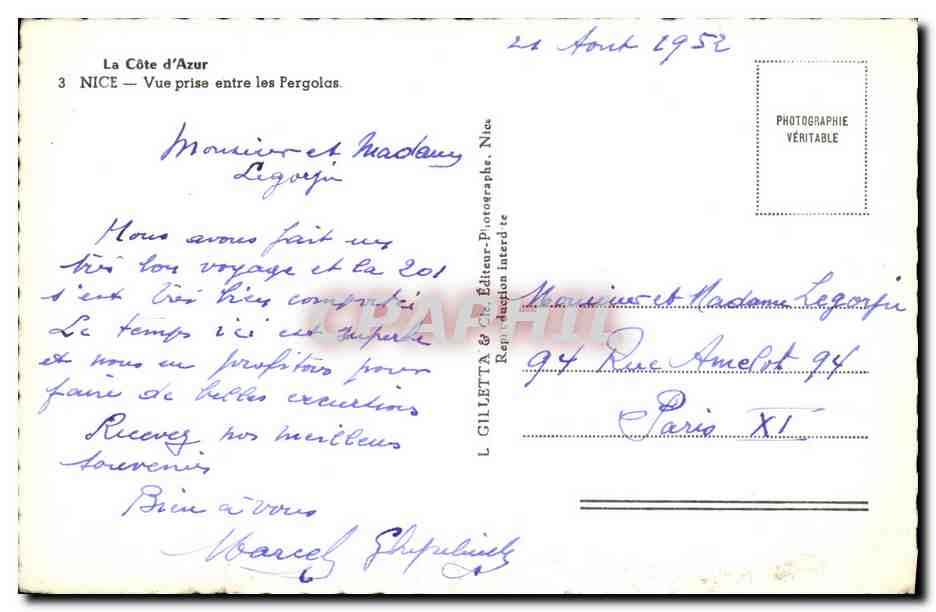 La Côte d'Azur
3 NICE — Vue prise entre les Pergolas.
21 Aout 1952
Monsieur et Madame
Legorju
Nous avons fait un
très bon voyage et la 201
s'est très bien comportée
Le temps ici est superbe
et nous en profitons pour
faire de belles excurtions
Recevez nos meilleurs
souvenirs
Bien à vous
Marcel
L GILLETTA & Cie, Éditeur-Photographe, Nice
Reproduction interdite
PHOTOGRAPHIE
VÉRITABLE
Monsieur et Madame Legorju
94 Rue Amelot 94
Paris XI
CPAPHIL